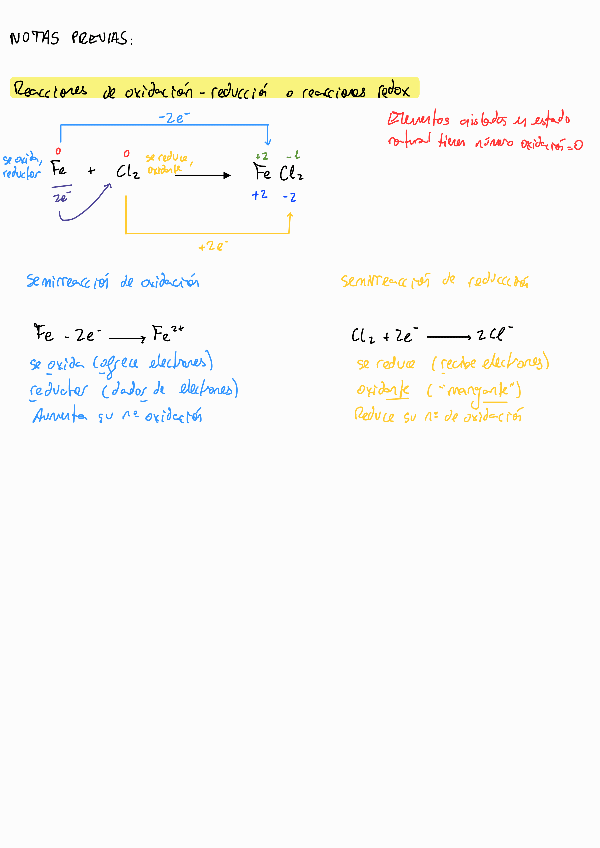 NOTAS PREVIAS:
Reacciones de oxidación - reducción o reacciones redox
-2e⁻
Elementos aislados en estado
natural tienen número oxidación=0
0 0 +2 -1
se oxida, se reduce,
reductor oxidante
Fe + Cl₂ → Fe Cl₂
2e⁻ +2 -2
+2e⁻
Semirreacción de oxidación
Semirreacción de reducción
Fe - 2e⁻ → Fe²⁺
Cl₂ + 2e⁻ → 2Cl⁻
se oxida (ofrece electrones)
se reduce (recibe electrones)
reductor (dador de electrones)
oxidante ("mangante")
Aumenta su nº oxidación
Reduce su nº de oxidación